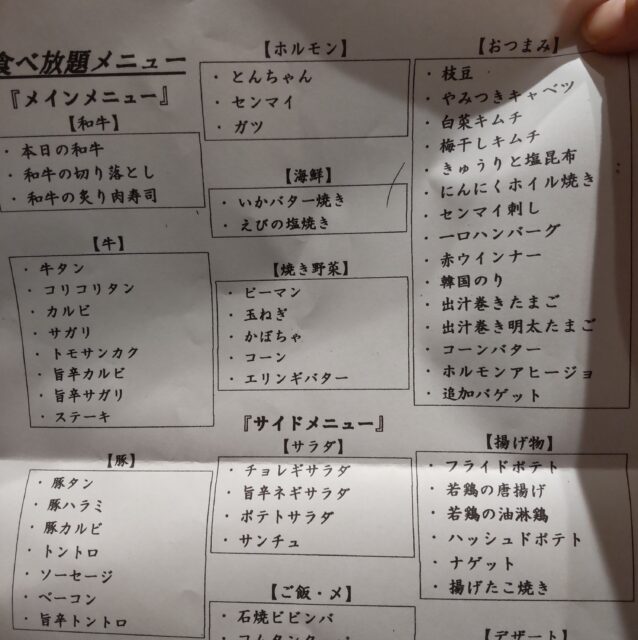 食べ放題メニュー
『メインメニュー』
【和牛】
・本日の和牛
・和牛の切り落とし
・和牛の炙り肉寿司
【牛】
・牛タン
・コリコリタン
・カルビ
・サガリ
・トモサンカク
・旨辛カルビ
・旨辛サガリ
・ステーキ
【豚】
・豚タン
・豚ハラミ
・豚カルビ
・トントロ
・ソーセージ
・ベーコン
・旨辛トントロ
【ホルモン】
・とんちゃん
・センマイ
・ガツ
【海鮮】
・いかバター焼き
・えびの塩焼き
【焼き野菜】
・ピーマン
・玉ねぎ
・かぼちゃ
・コーン
・エリンギバター
『サイドメニュー』
【サラダ】
・チョレギサラダ
・旨辛ネギサラダ
・ポテトサラダ
・サンチュ
【ご飯・メ】
・石焼ビビンバ
【おつまみ】
・枝豆
・やみつきキャベツ
・白菜キムチ
・梅干しキムチ
・きゅうりと塩昆布
・にんにくホイル焼き
・センマイ刺し
・一口ハンバーグ
・赤ウインナー
・韓国のり
・出汁巻きたまご
・出汁巻き明太たまご
・コーンバター
・ホルモンアヒージョ
・追加バゲット
【揚げ物】
・フライドポテト
・若鶏の唐揚げ
・若鶏の油淋鶏
・ハッシュドポテト
・ナゲット
・揚げたこ焼き
【デザート】